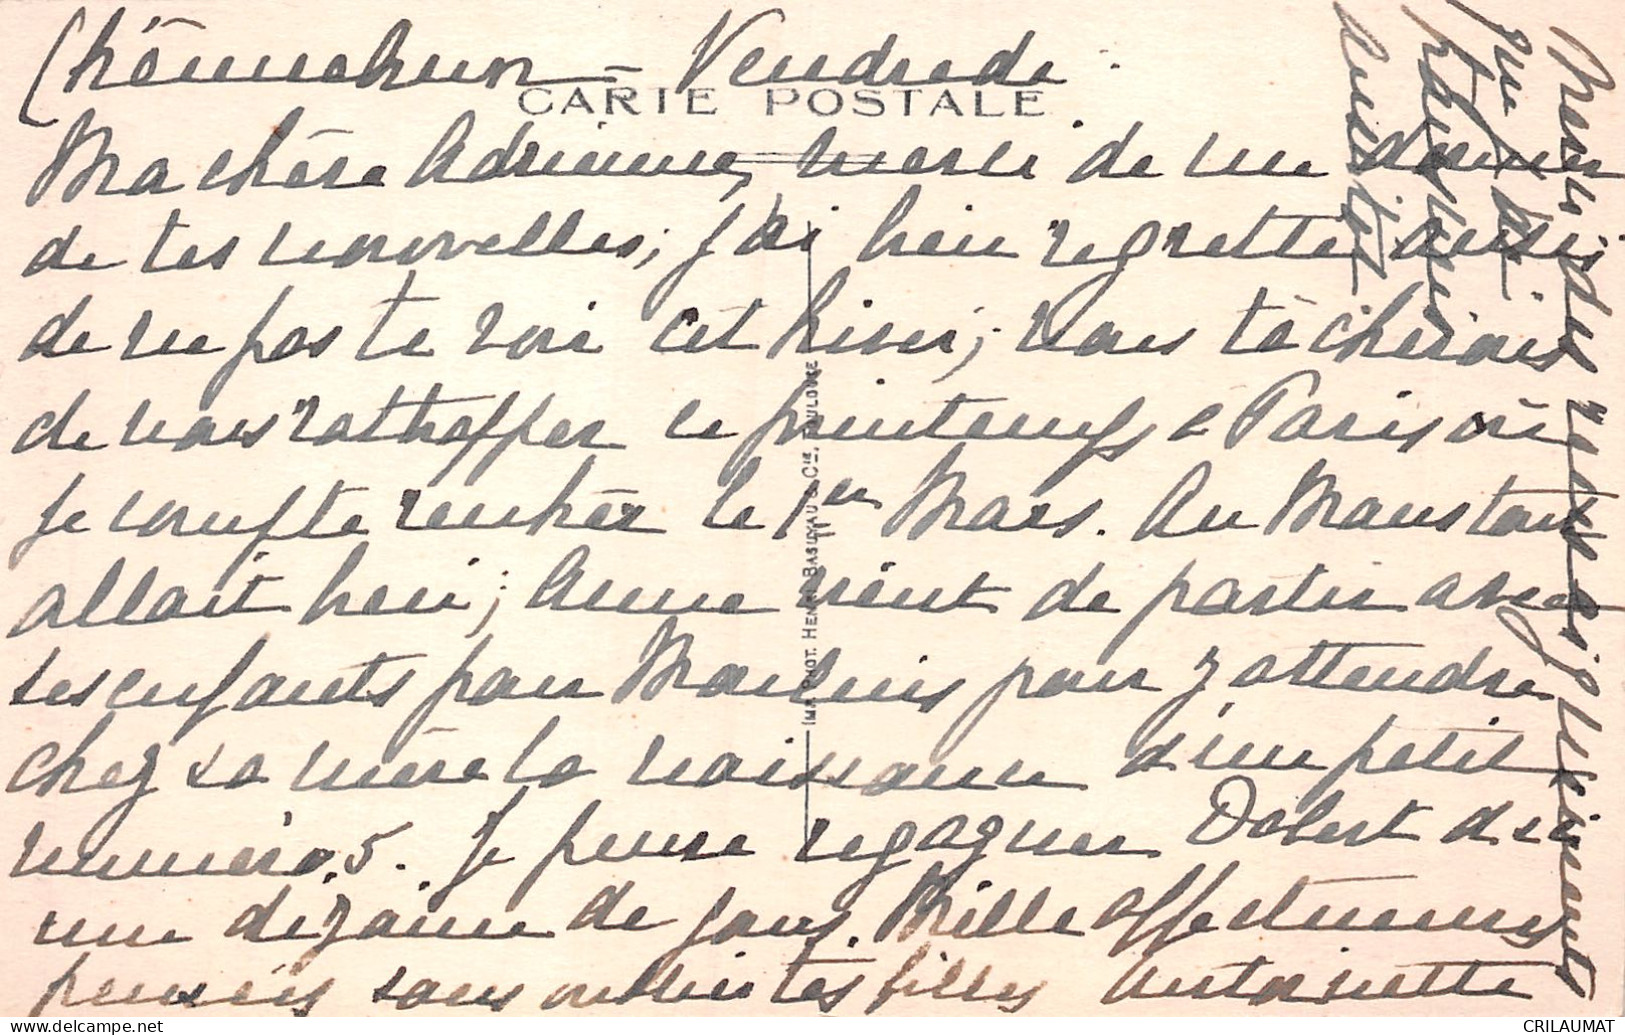 Vendredi.
CARTE POSTALE
Ma chère Adrienne, merci de me donner
de tes nouvelles; j'ai bien regretté aussi
de ne pas te voir cet hiver; nous tâcherons
de nous rattrapper ce printemps à Paris où
je compte rentrer le 1er Mars. Au tout
allait bien; Anne vient de partir avec
ses enfants pour Moulins pour y attendre
chez sa mère la naissance d'un petit
numéro 5. Je pense regagner d'ici
une dizaine de jours. Mille affectueuses
pensées sans oublier tes filles Antoinette
Merci des renseignements
que tu
IMP. PHOT. HENRI BASUYAU & Cie, TOULOUSE
CRILAUMAT